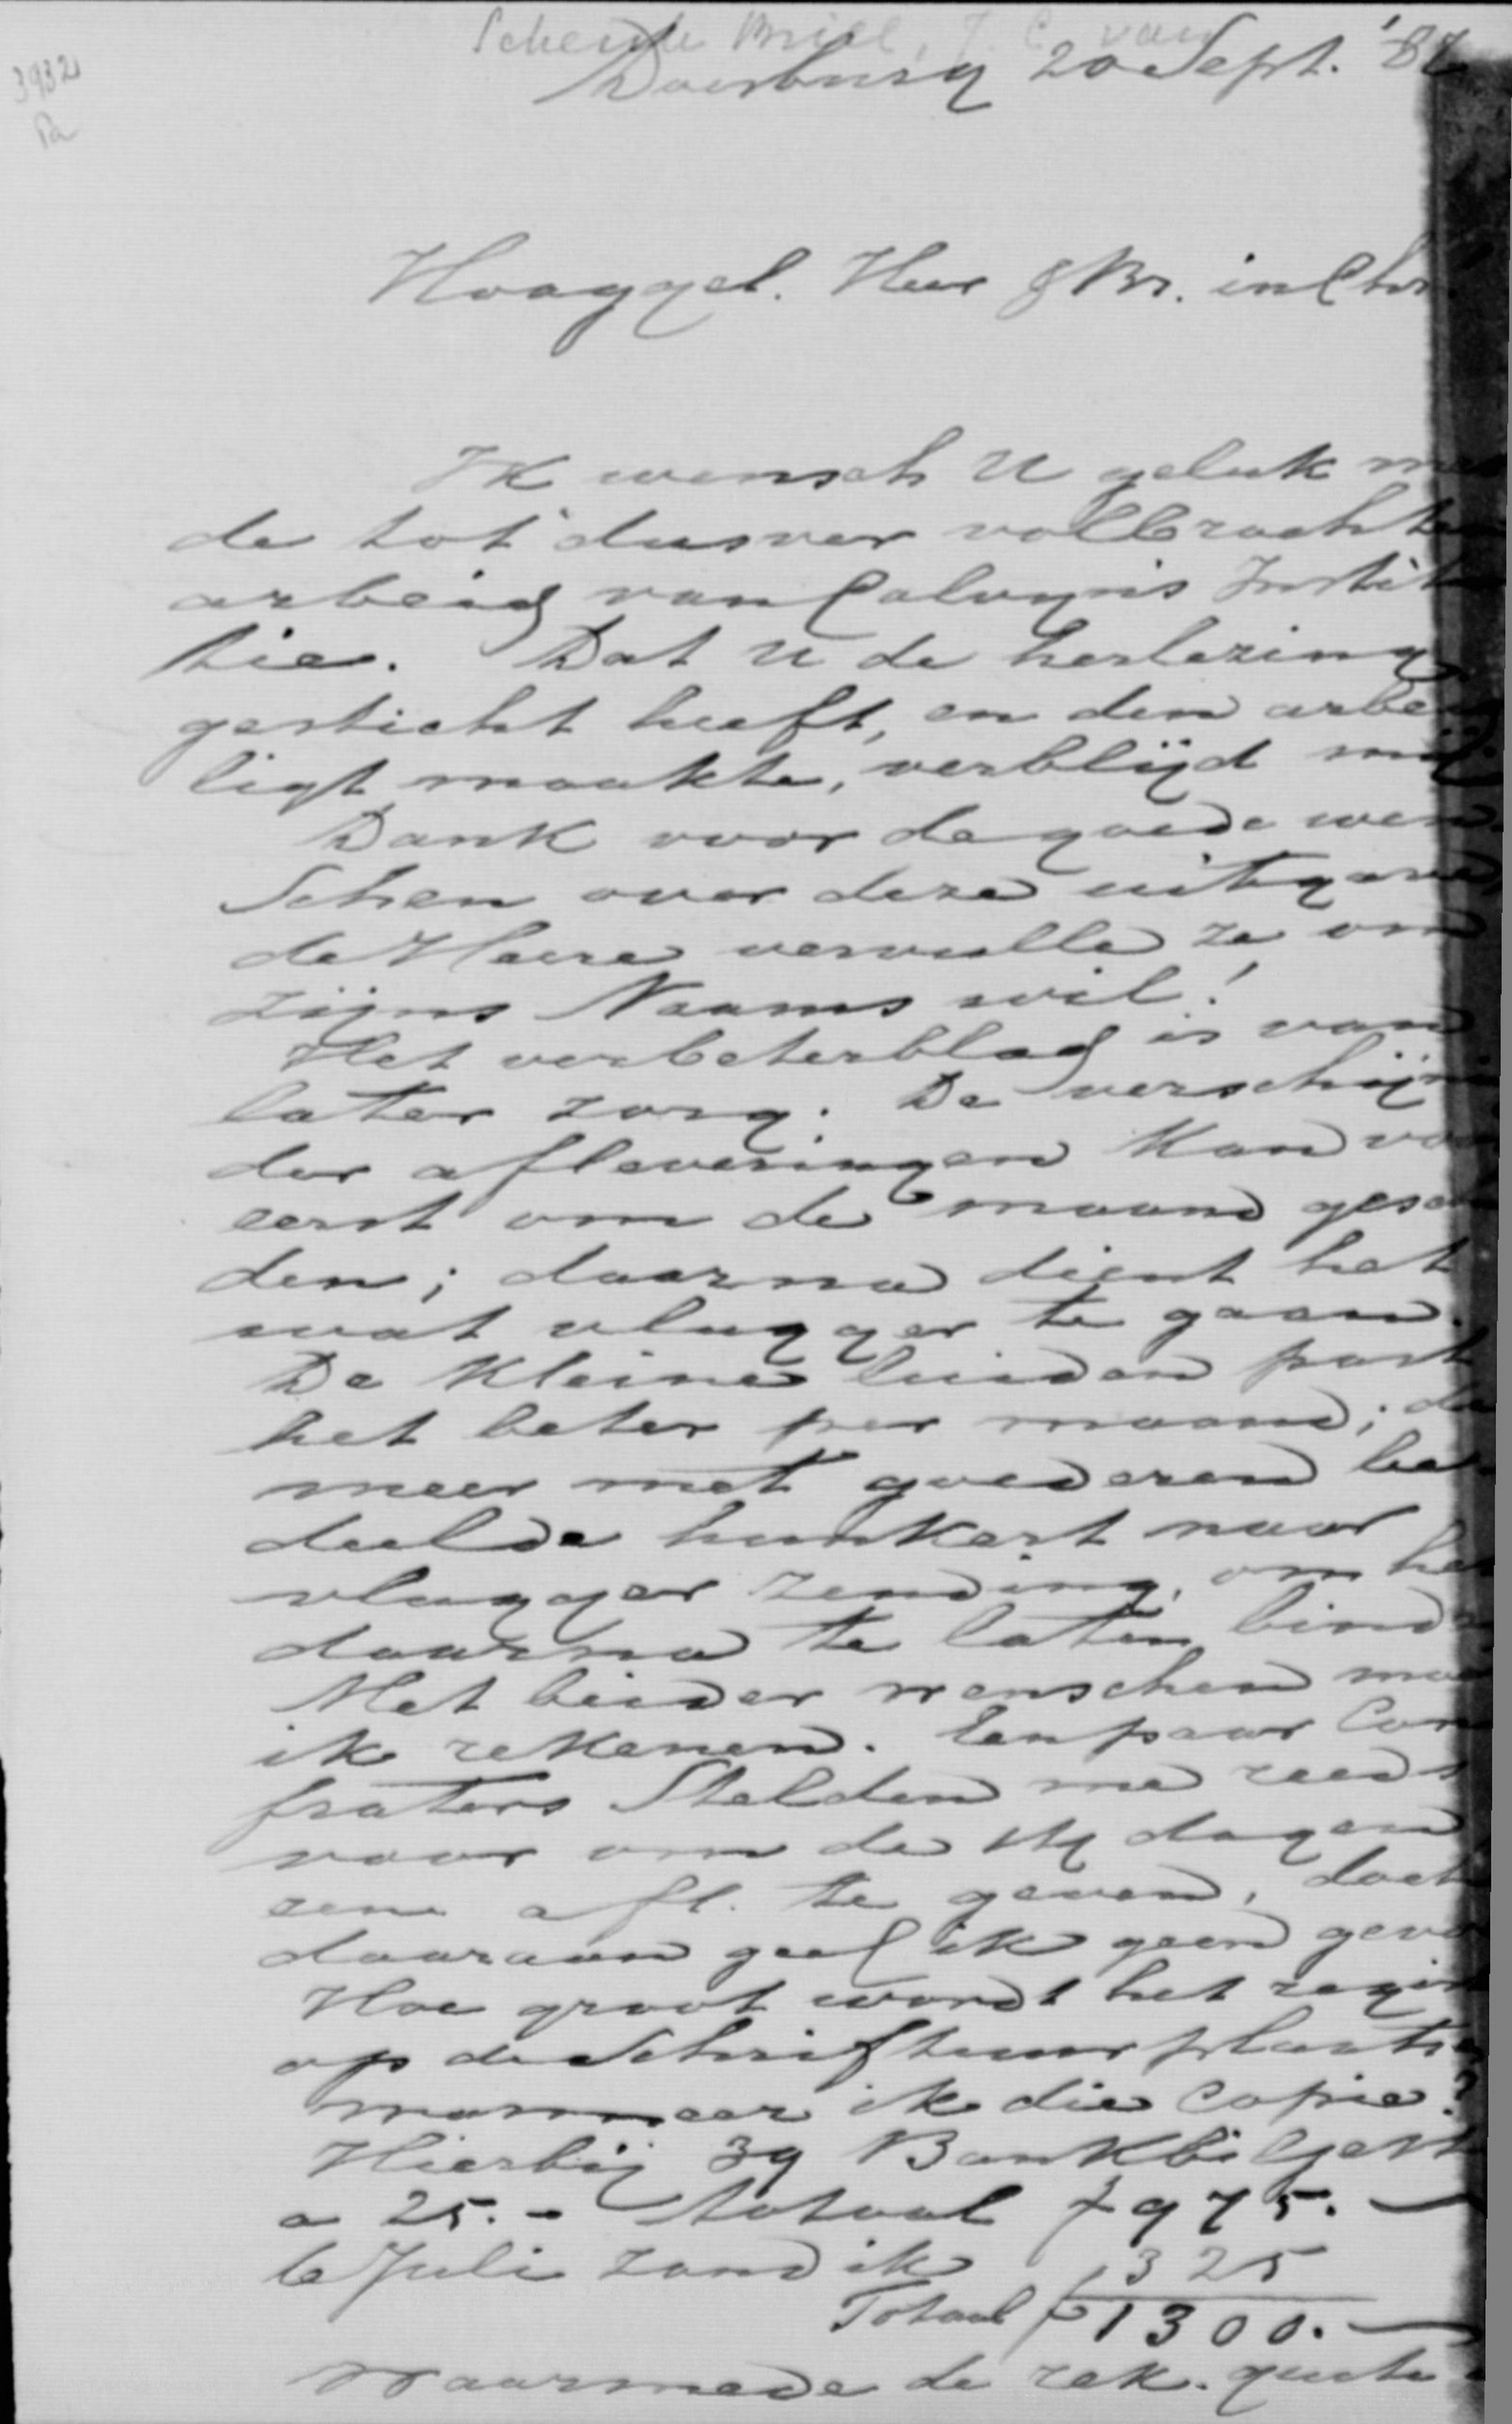 Schenk Brill, J. C. van
3932
Pa
Doesburg 20 Sept. '87
Hooggel. Heer & Br. in Chr.
Ik wensch U geluk met
de tot dusver volbrachten
arbeid van Calvyns Institu
tie. Dat U de herlezing
gesticht heeft, en den arbeid
ligt maakte, verblijd mij
Dank voor de goede wen
schen over deze uitgave,
de Heere vervulle ze om
zijns Naams wil!
Het verbeterblad is van
later zorg. De verschijn
der afleveringen kan voor
eerst om de maand gesch
den; daarna dient het
wat vlugger te gaan.
De kleine luiden past
het beter per maand; de
meer met goederen be
deelde hunkert naar
vlugger zending, om het
daarna te laten bind
Met beider wenschen moe
ik rekenen. Een paar Con
fraters stelden me reeds
voor om de 14 dagen
eene afl. te geven, doch
daaraan geef ik geen gevo
Hoe groot wordt het regis
op de Schriftuurplaatse
wanneer ik die Copie?
Hierbij 39 Bankbiljett
a 25.- totaal f 975.-
6 Juli zond ik 325
Totaal f 1300.-
waarmede de rek. quite